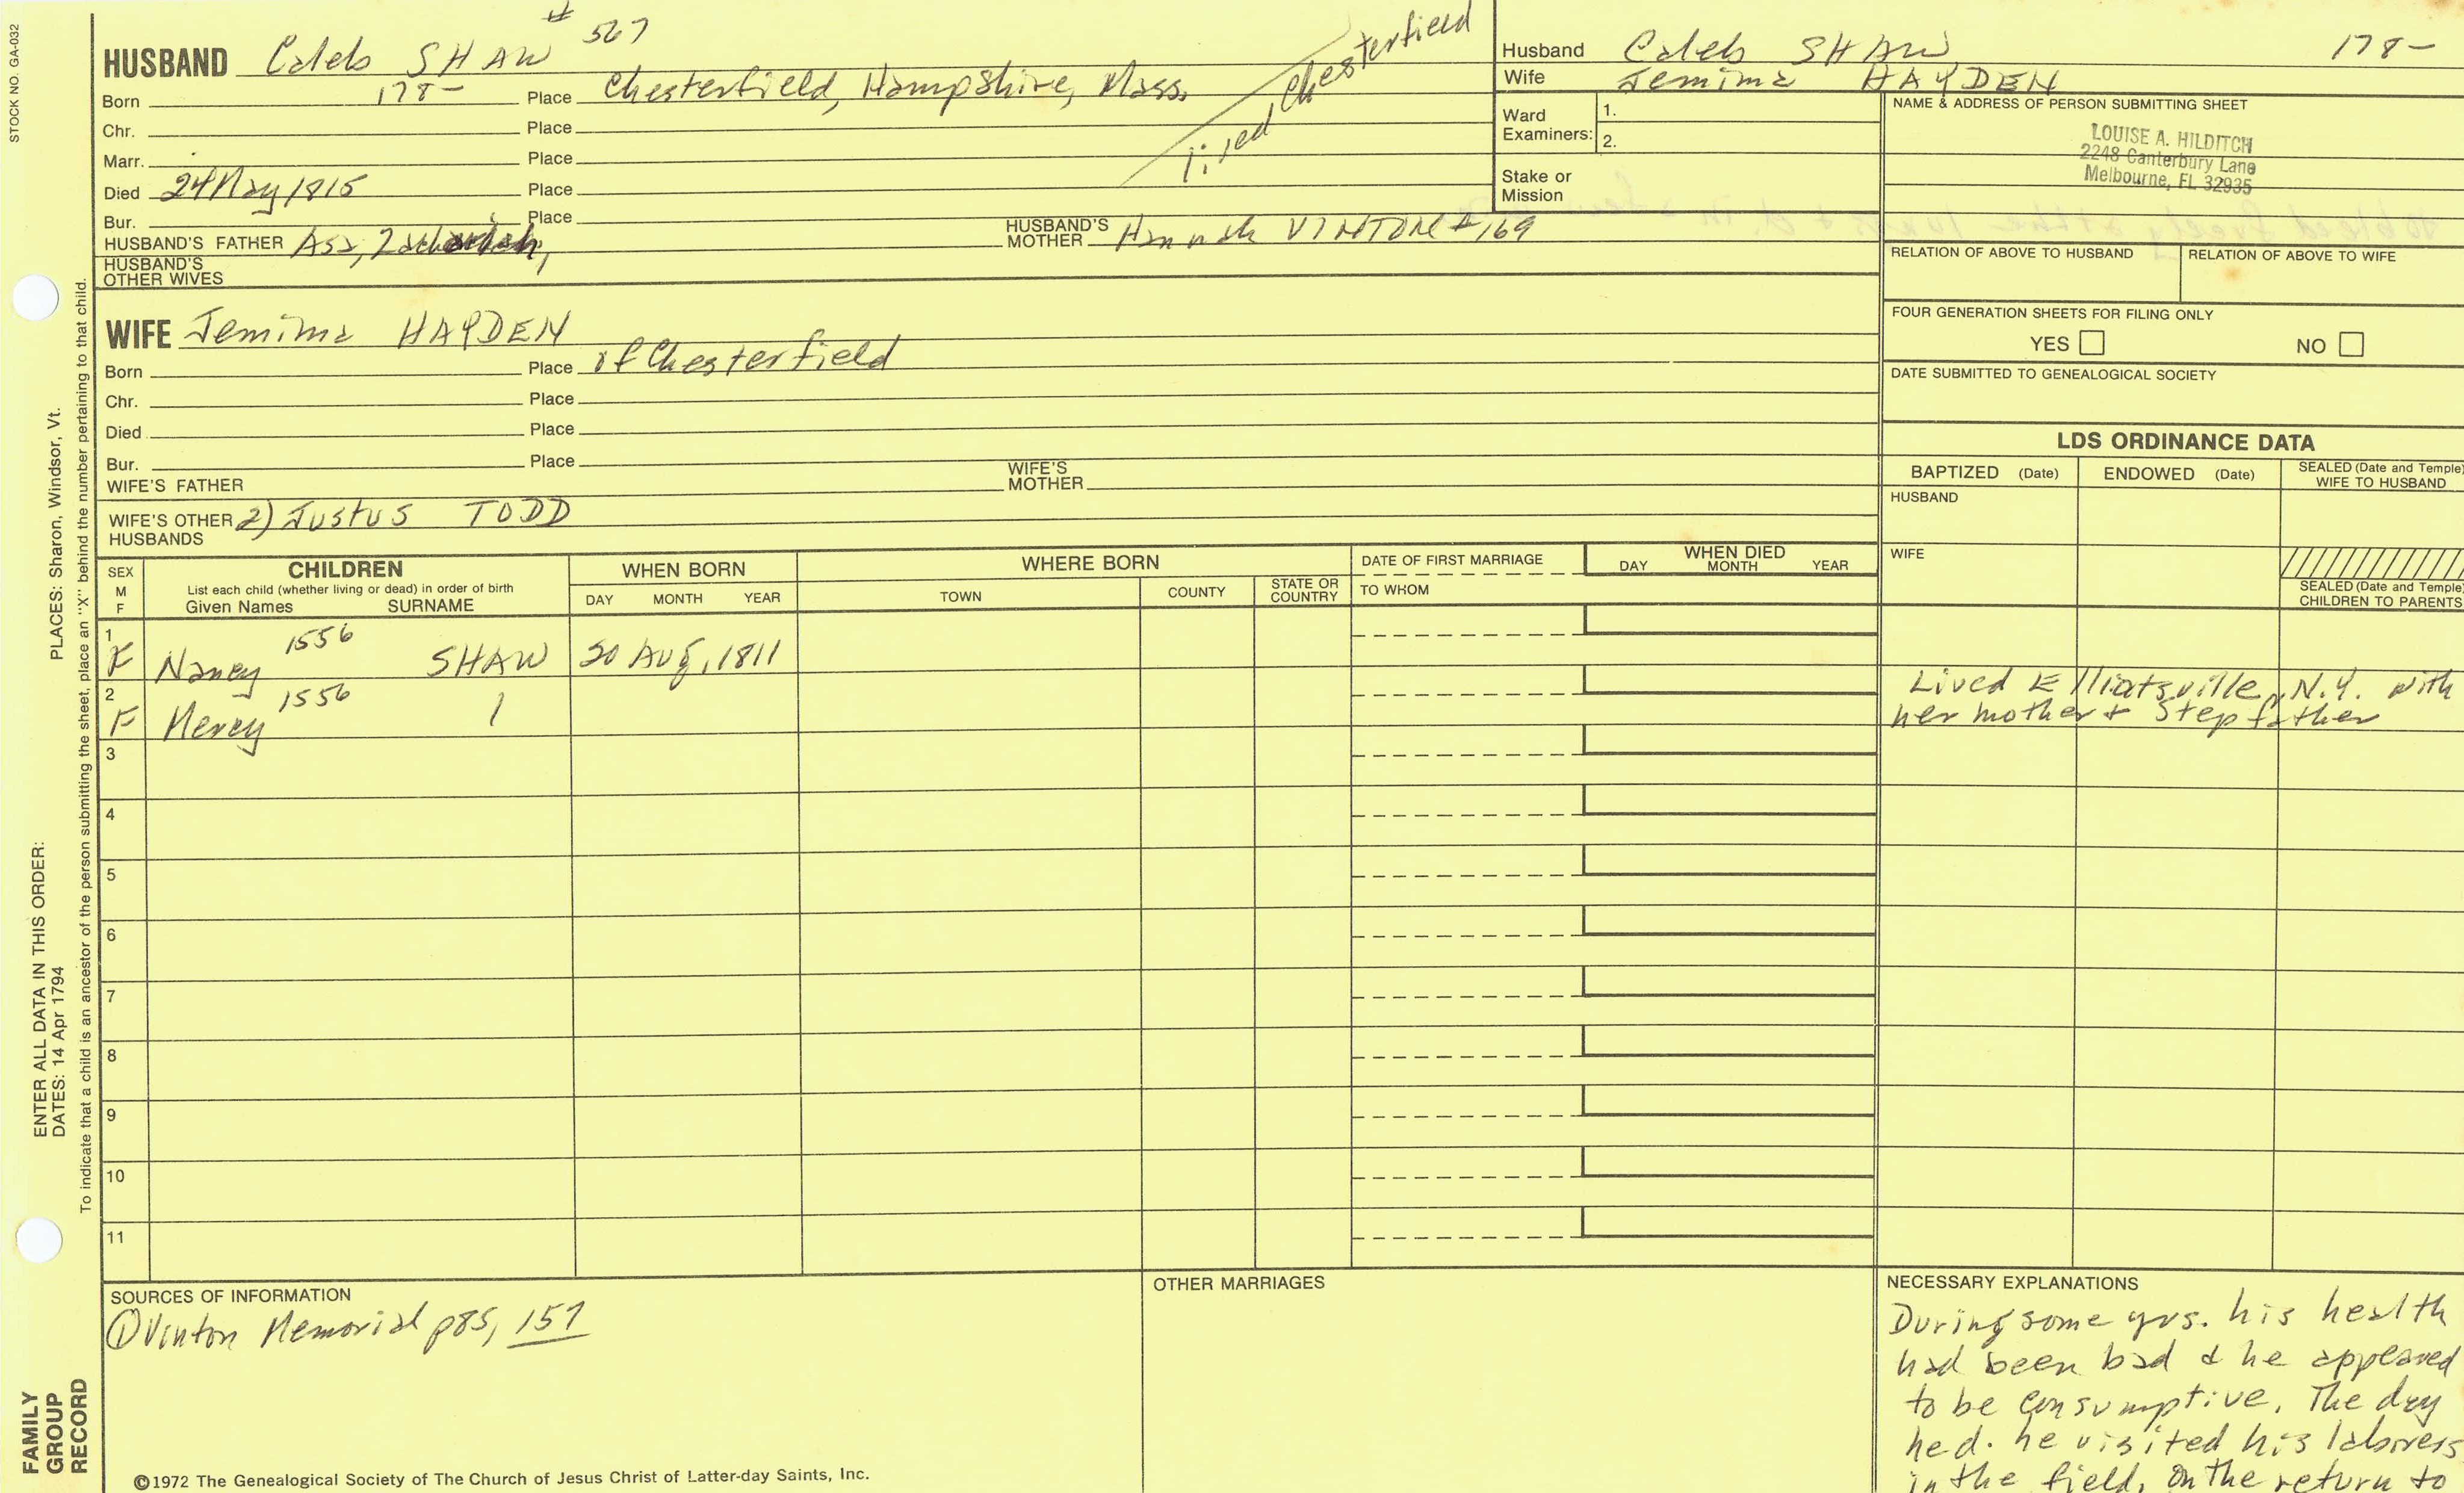 STOCK NO. GA-032
HUSBAND Caleb SHAW # 567
Born 178- Place Chesterfield, Hampshire, Mass.
lived Chesterfield
Chr. Place
Marr. Place
Died 24 May 1815 Place
Bur. Place
HUSBAND'S FATHER Asa,
HUSBAND'S MOTHER Hannah VINTON #169
HUSBAND'S OTHER WIVES
Husband Caleb SHAW 178-
Wife Jemima HAYDEN
Ward Examiners: 1.
2.
Stake or Mission
NAME & ADDRESS OF PERSON SUBMITTING SHEET
LOUISE A. HILDITCH
2248 Canterbury Lane
Melbourne, FL 32935
RELATION OF ABOVE TO HUSBAND RELATION OF ABOVE TO WIFE
FOUR GENERATION SHEETS FOR FILING ONLY
YES NO
DATE SUBMITTED TO GENEALOGICAL SOCIETY
WIFE Jemima HAYDEN
Born Place of Chesterfield
Chr. Place
Died Place
Bur. Place
WIFE'S FATHER
WIFE'S MOTHER
WIFE'S OTHER HUSBANDS 2) Justus TODD
LDS ORDINANCE DATA
BAPTIZED (Date) ENDOWED (Date) SEALED (Date and Temple) WIFE TO HUSBAND
HUSBAND
WIFE
SEALED (Date and Temple) CHILDREN TO PARENTS
SEX M F
CHILDREN
List each child (whether living or dead) in order of birth
Given Names SURNAME
WHEN BORN
DAY MONTH YEAR
WHERE BORN
TOWN COUNTY STATE OR COUNTRY
DATE OF FIRST MARRIAGE
TO WHOM
WHEN DIED
DAY MONTH YEAR
1 F Nancy 1556 SHAW 20 Aug, 1811
2 F Mercy 1556
Lived Elliatsville, N.Y. with
her mother & Stepfather
3
4
5
6
7
8
9
10
11
SOURCES OF INFORMATION
① Vinton Memorial p85, 157
OTHER MARRIAGES
NECESSARY EXPLANATIONS
During some yrs. his health
had been bad & he appeared
to be consumptive. The day
he d. he visited his laborers
in the field, On the return to
©1972 The Genealogical Society of The Church of Jesus Christ of Latter-day Saints, Inc.
PLACES: Sharon, Windsor, Vt.
To indicate that a child is an ancestor of the person submitting the sheet, place an "X" behind the number pertaining to that child.
ENTER ALL DATA IN THIS ORDER:
DATES: 14 Apr 1794
FAMILY
GROUP
RECORD